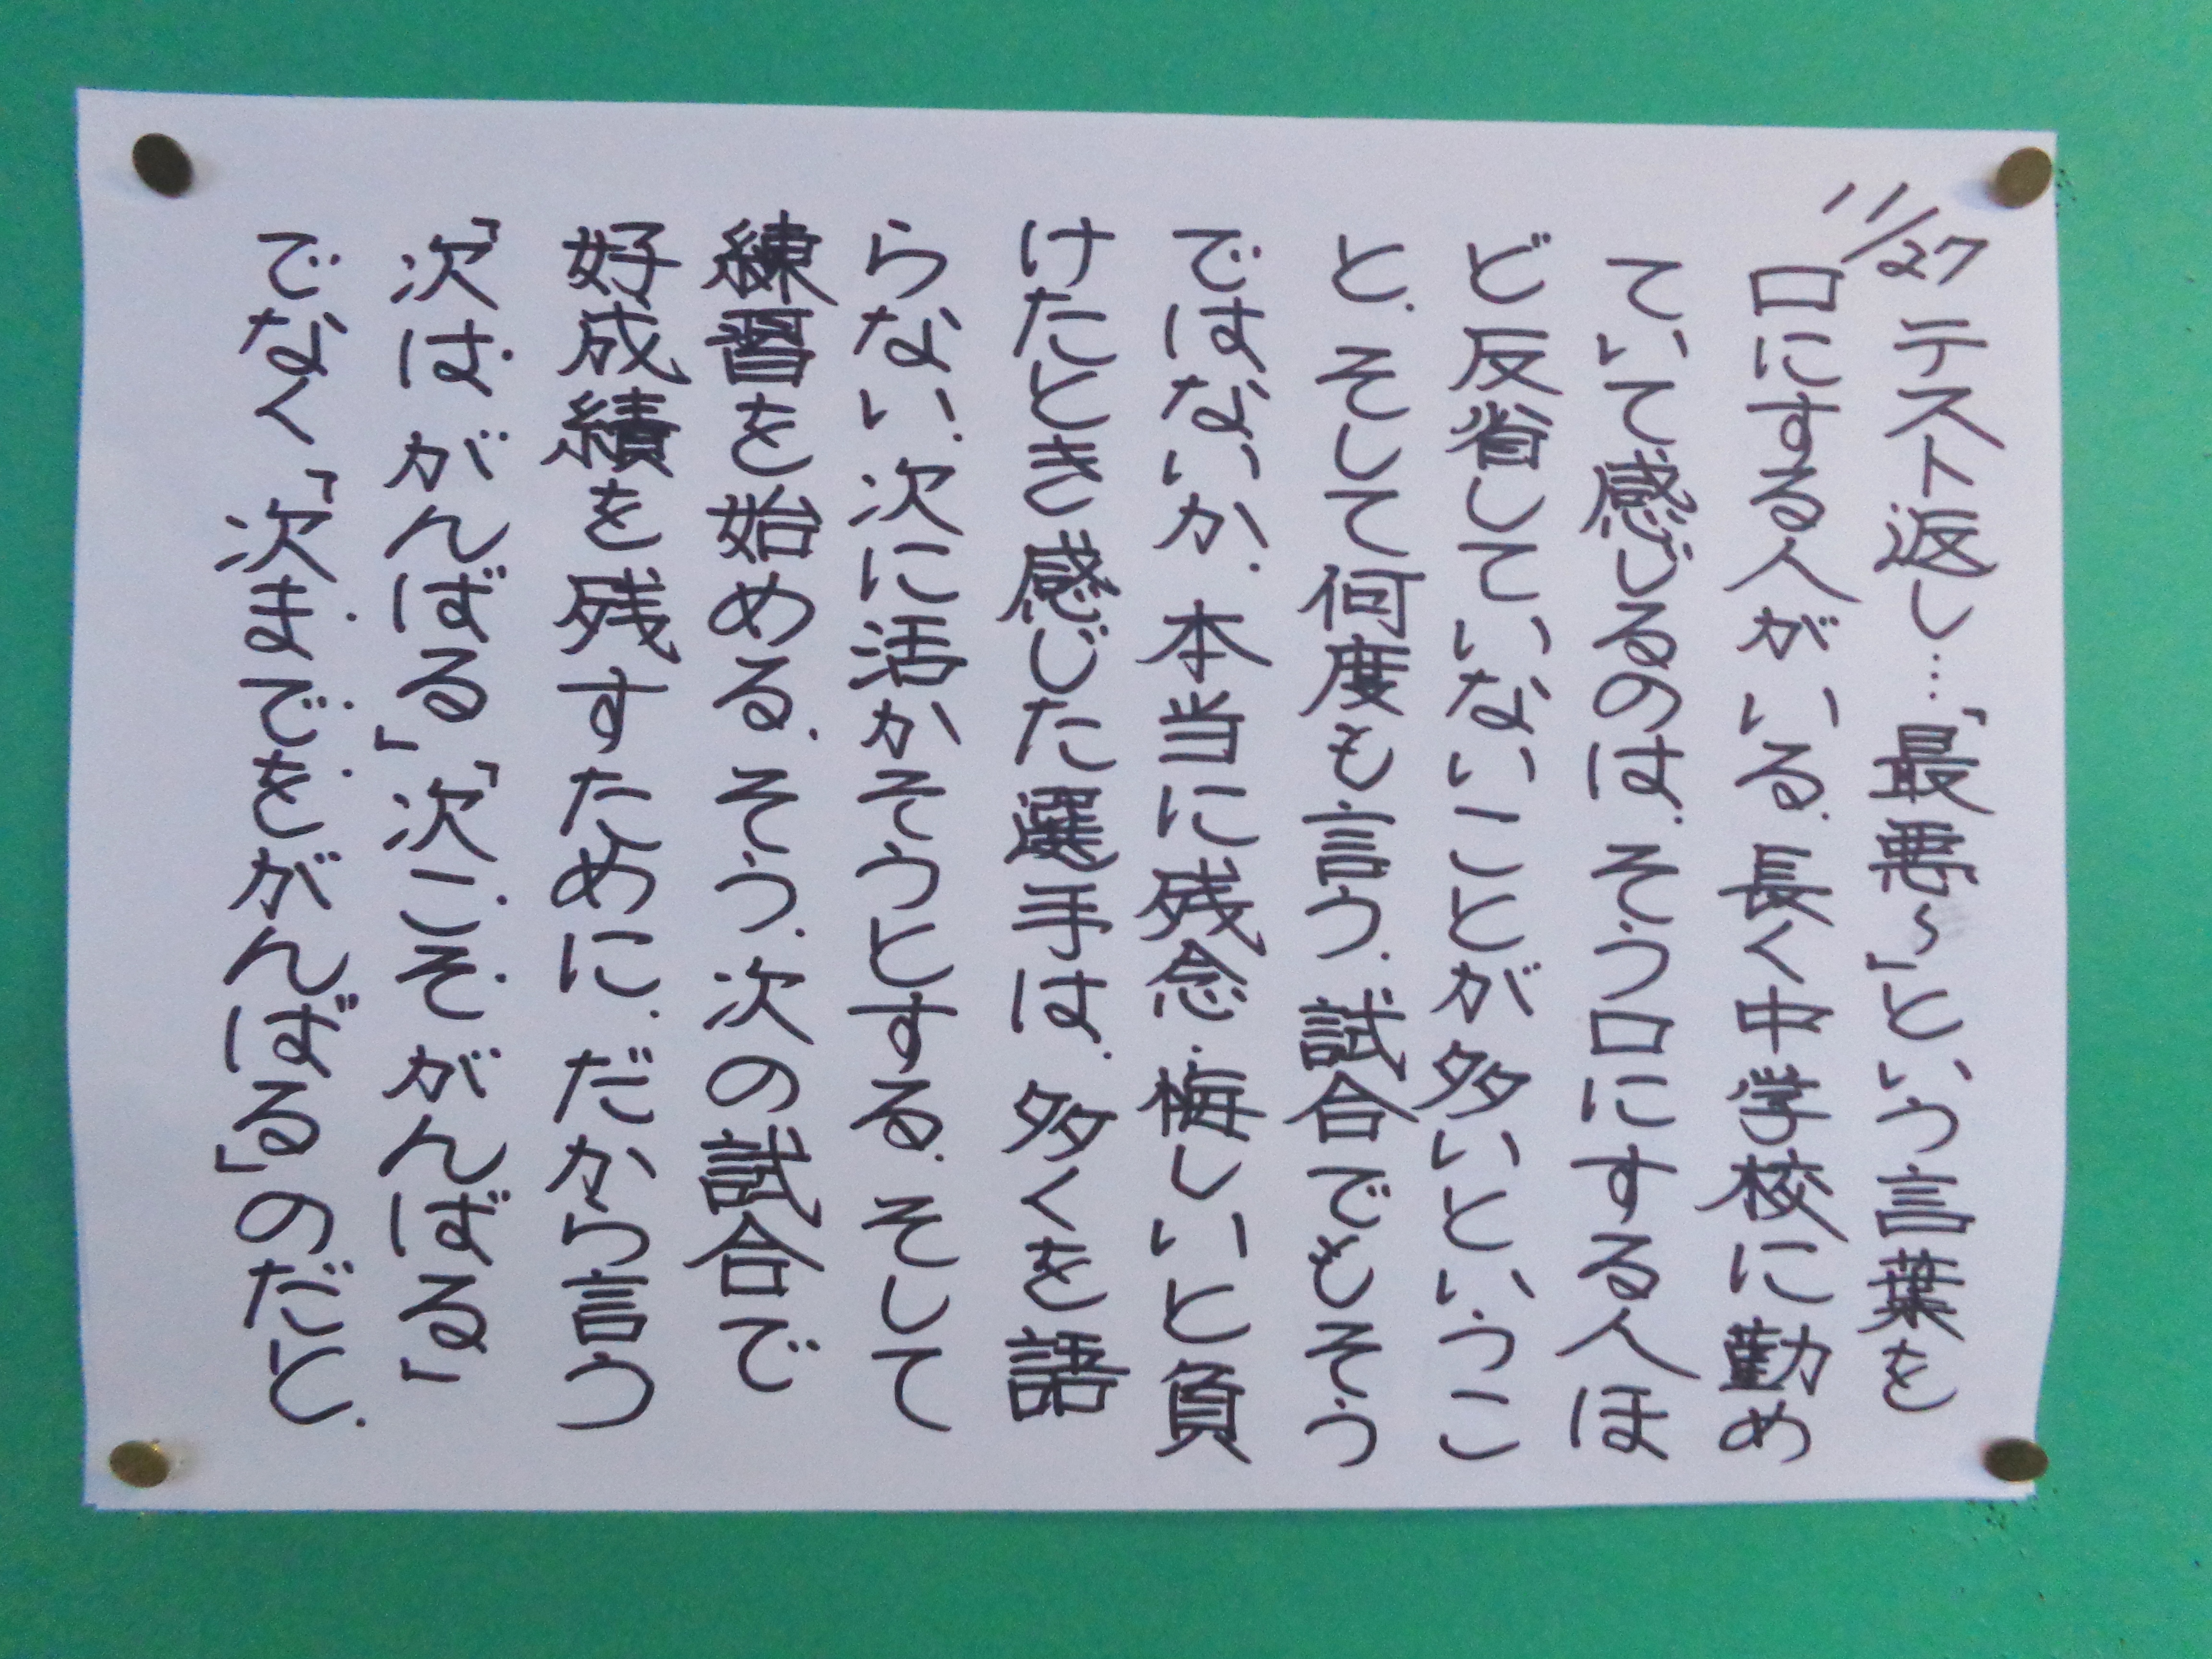 11/27 テスト返し…「最悪～」という言葉を
口にする人がいる.長く中学校に勤め
ていて感じるのは.そう口にする人ほ
ど反省していないことが多いというこ
と.そして何度も言う.試合でもそう
ではないか.本当に残念.悔しいと負
けたとき感じた選手は.多くを語
らない.次に活かそうとする.そして
練習を始める.そう.次の試合で
好成績を残すために.だから言う
「次はがんばる」「次こそがんばる」
でなく「次までをがんばる」のだと.